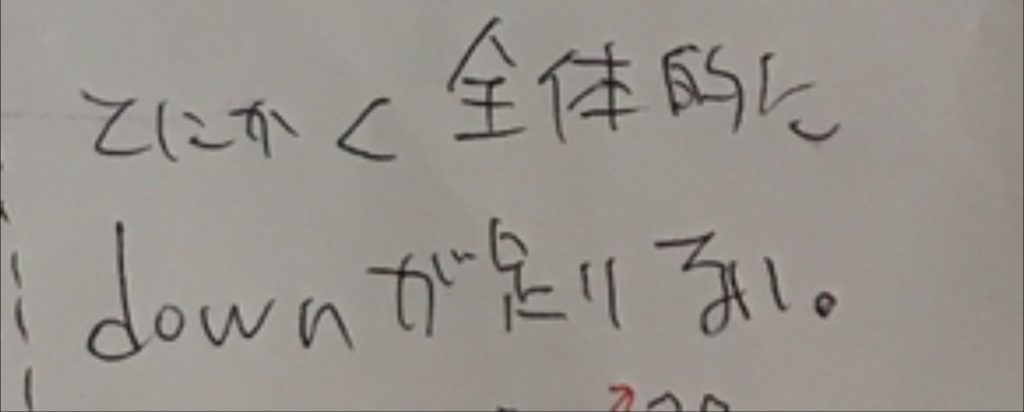 とにかく全体的に
downが足りない。